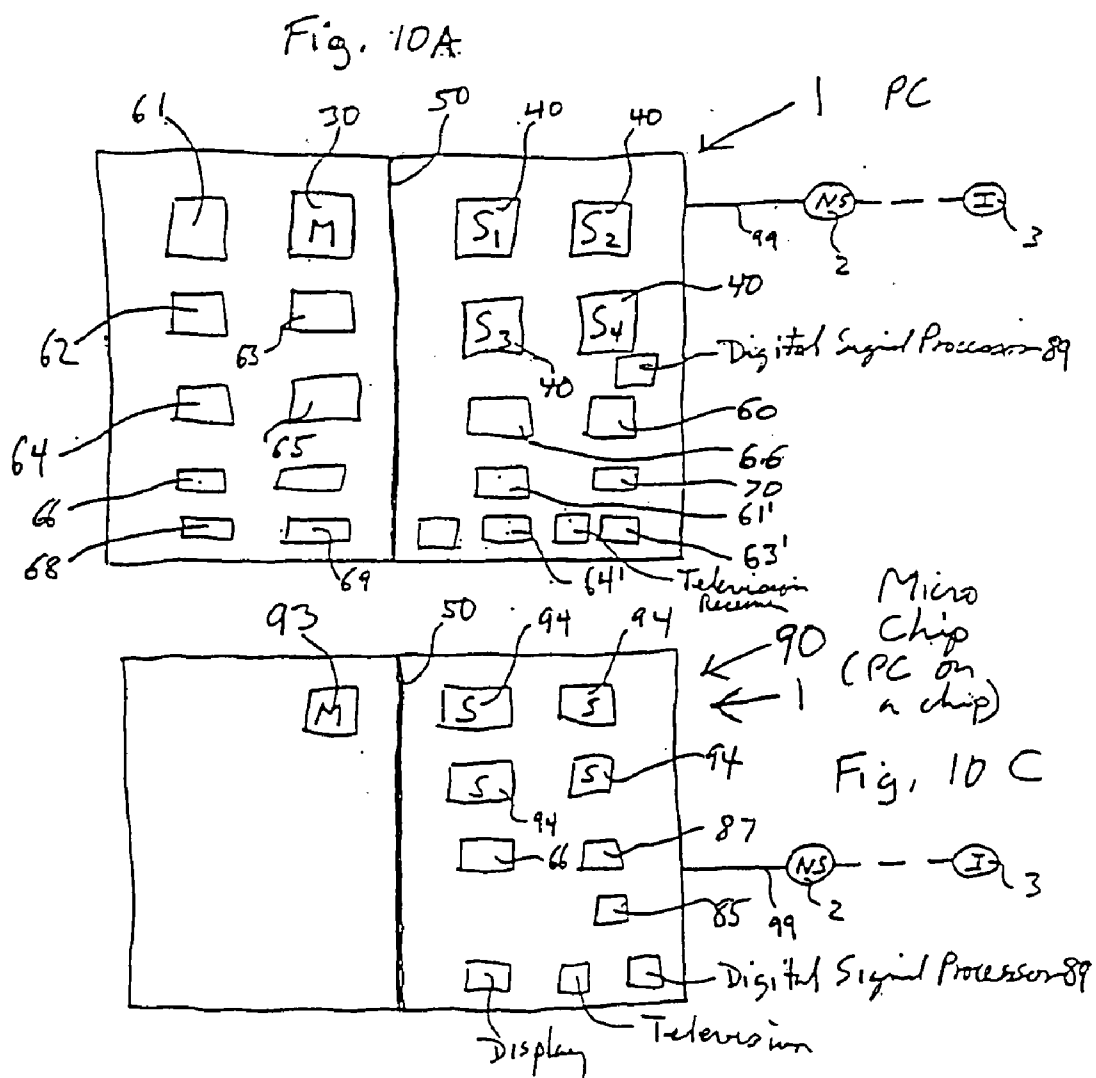 Fig. 10A
61
30
50
40
40
1 PC
M
S1
S2
NS
I
99
2
3
62
63
S3
40
S4
40
Digital Signal Processor 89
64
65
60
66
66
70
61'
68
69
64'
Television
Receiver
63'
93
50
94
94
90
1
Micro
Chip
(PC on
a chip)
M
S
S
S
94
S
94
Fig. 10 C
66
87
NS
I
99
2
3
85
Digital Signal Processor 89
Display
Television